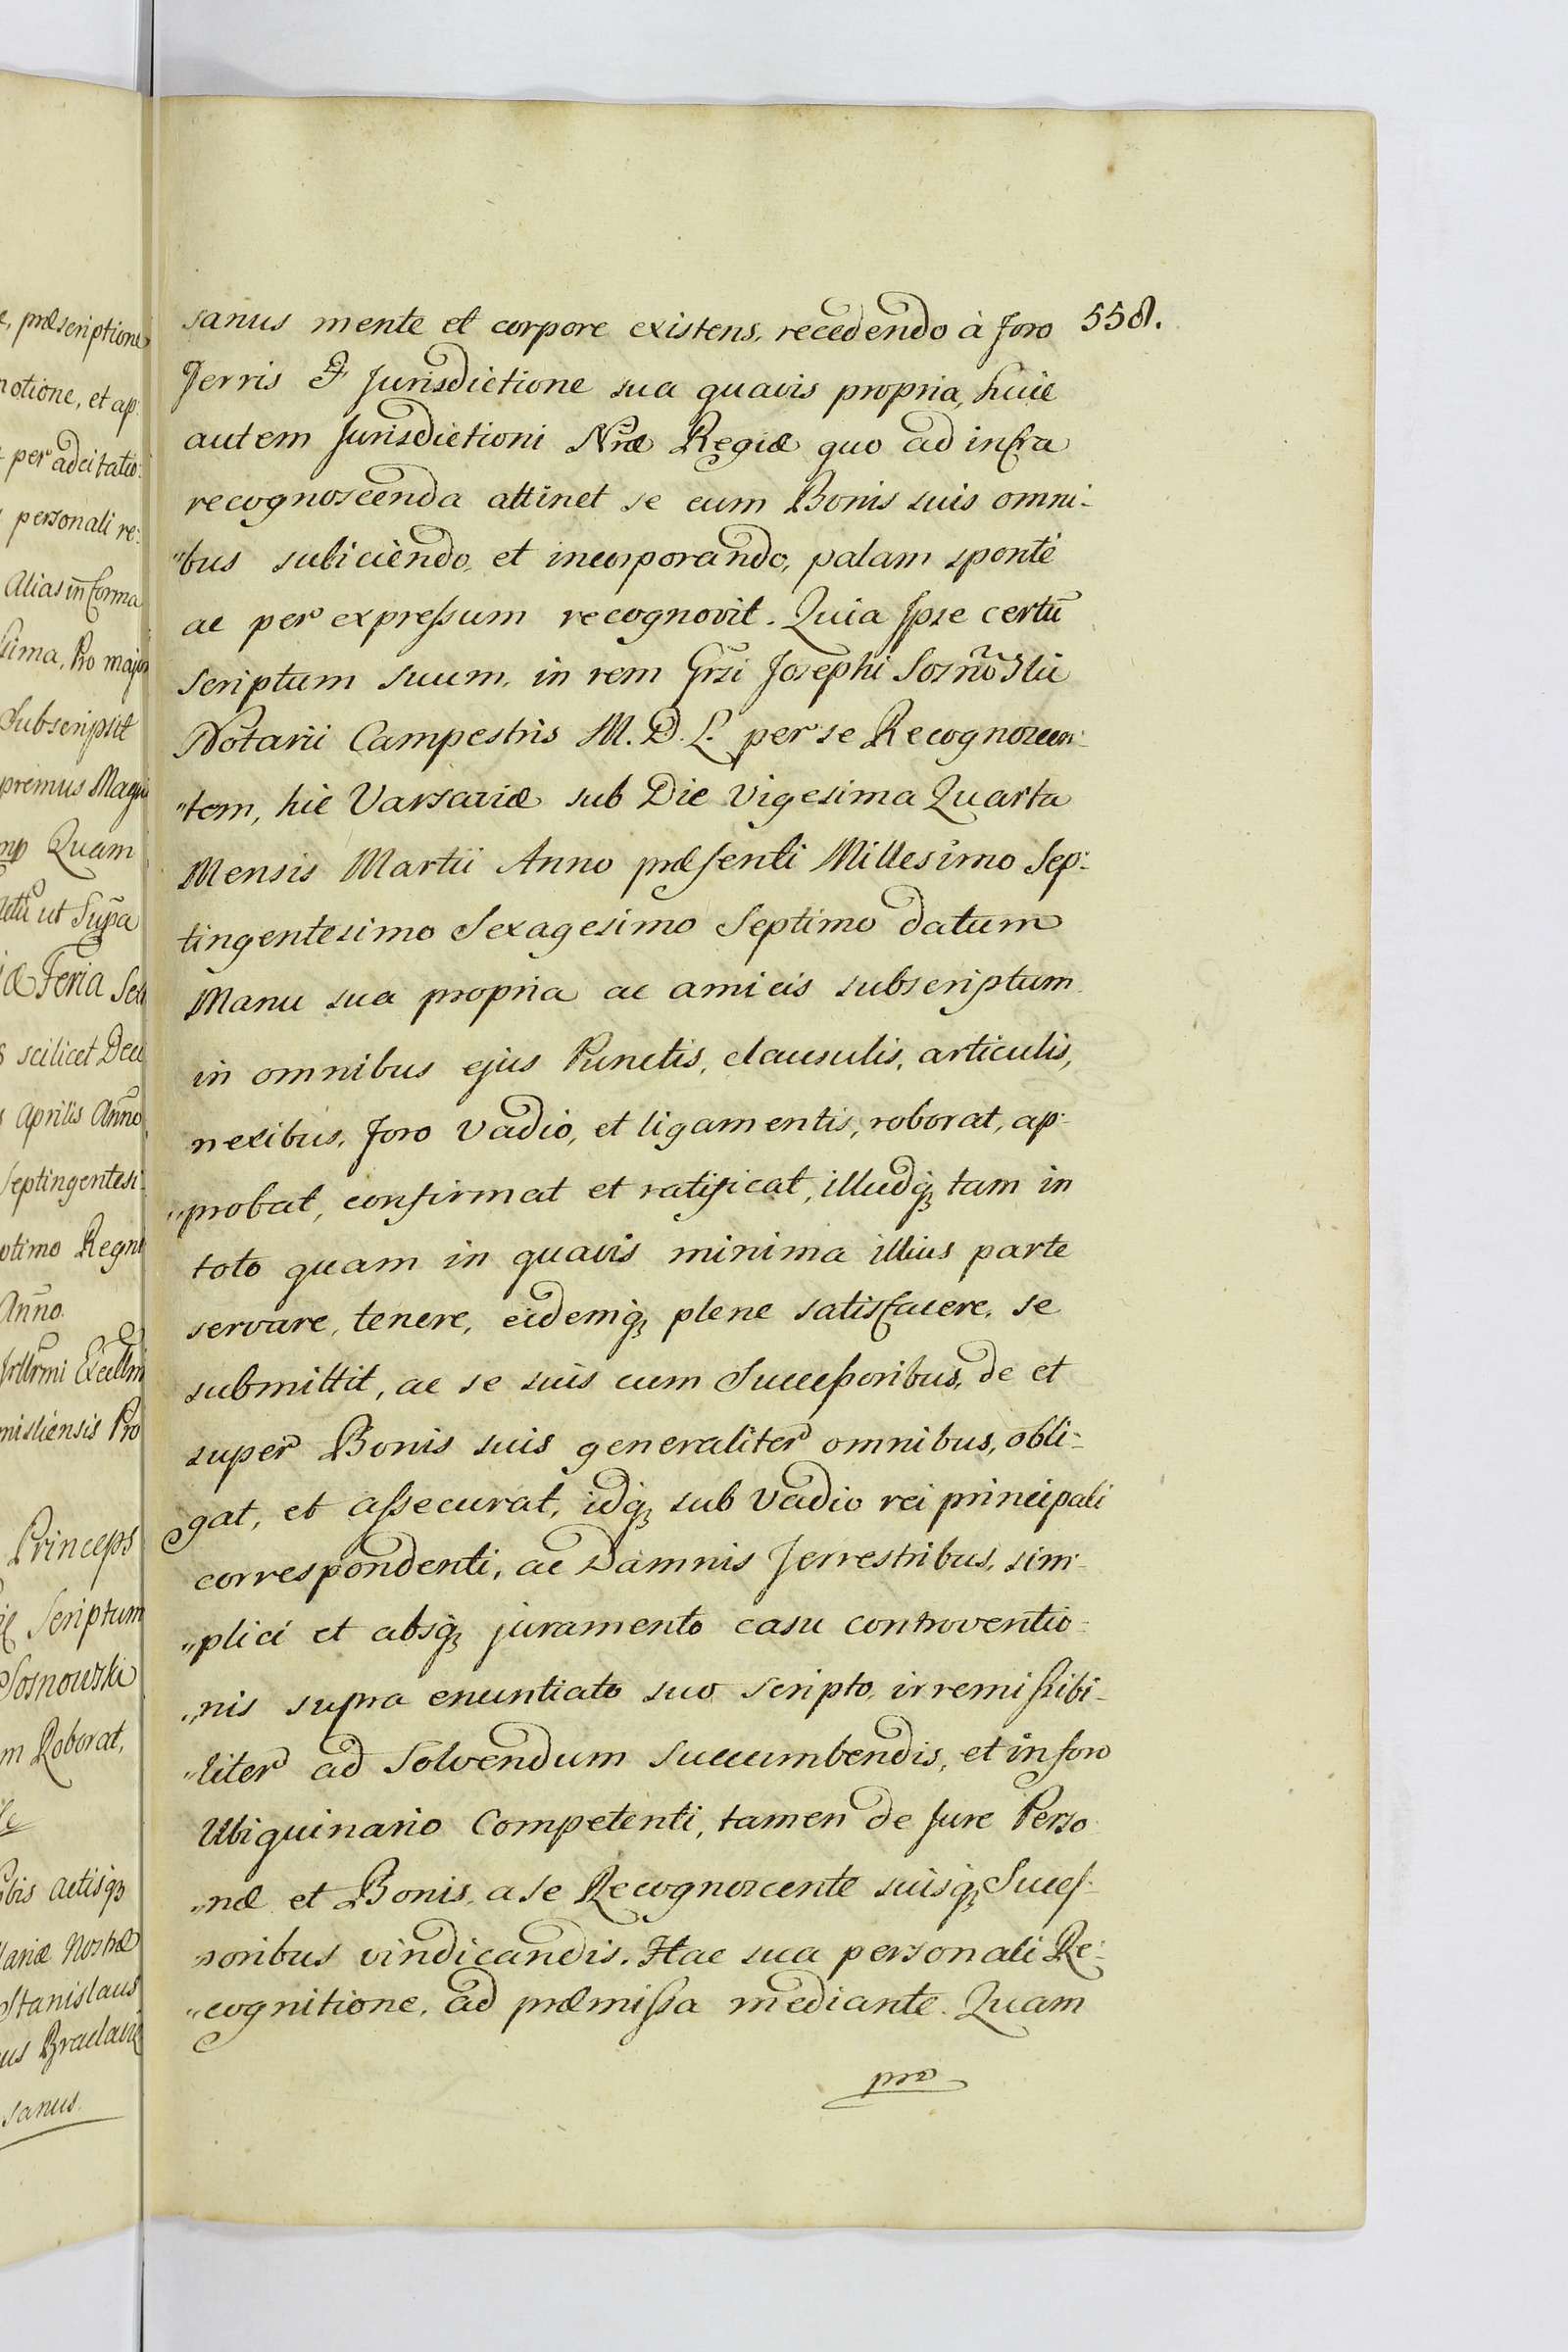 e, præscriptione
notione, et ap:
per adcitatio:
personali re:
Alias in forma
sima, Pro major
Subscripsit
premus Magn
mp Quam
ut Supa
æ Feria Sex
scilicet Dec
Aprilis Anno
Septingentesi-
ptimo Regni
Anno.
Illrmi Excellmi
misliensis Pro
Princeps
Scriptum
Sosnowski
m Roborat,
bis Actisq3
lariæ Nostræ
Stanislaus
us Braclavi
sanus.
sanus mente et corpore existens, recedendo à foro 558.
Terris & Jurisdictione sua quavis propria, huic
autem Jurisdictioni Nræ Regiæ quo ad infra
recognoscenda attinet se cum Bonis suis omni-
"bus subiiciendo, et incorporando, palam sponte
ac per expressum recognovit. Quia Ipse certū
scriptum suum, in rem Grsi Josephi Sosnoski
Notarii Campestris M. D. L. per se Recognoscen:
"tem, hic Varsaviæ sub Die Vigesima Quarta
Mensis Martii Anno præsenti Millesimo Sep:
tingentesimo Sexagesimo Septimo datum
Manu sua propria ac amicis subscriptum
in omnibus ejus Punctis, clausulis, articulis,
nexibus, foro vadio, et ligamentis, roborat, ap:
"probat, confirmat et ratificat, illudq3 tam in
toto quam in quavis minima illius parte
servare, tenere, eidemq3 plene satisfacere, se
submittit, ac se suis cum Successoribus, de et
super Bonis suis generaliter omnibus, obli:
gat, et assecurat, idq3 sub vadio rei principali
correspondenti, ac Damnis Terrestribus, sim-
"plici et absq3 juramento casu controventio-
"nis supra enuntiato suo scripto, irremissibi-
"liter ad Solvendum succumbendis, et in foro
Ubiquinario Competenti, tamen de Jure Perso
"næ et Bonis, a se Recognoscente suisq3 Succes-
"soribus vindicandis. Hac sua personali Re:
"cognitione, ad præmissa mediante. Quam
pro